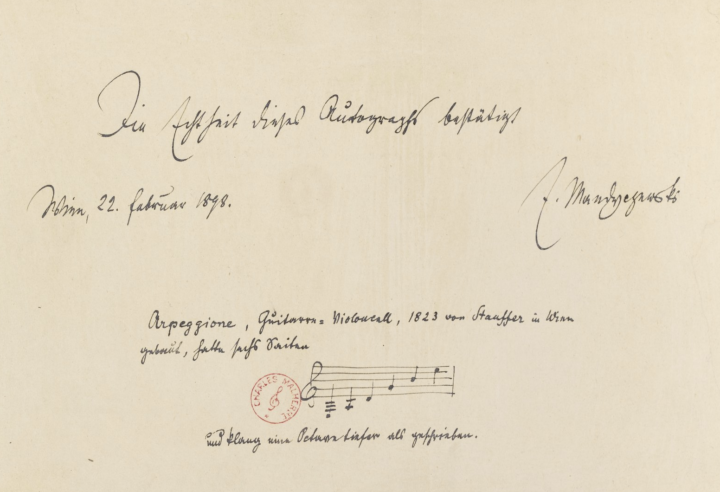 Die Echtheit dieses Autographs bestätigt
Wien, 22. Februar 1898.
E. Mandyczewski
Arpeggione, Guitarre=Violoncell, 1823 von Stauffer in Wien
gebaut, hatte sechs Saiten
CHARLES MALHERBE
und klang eine Octave tiefer als geschrieben.